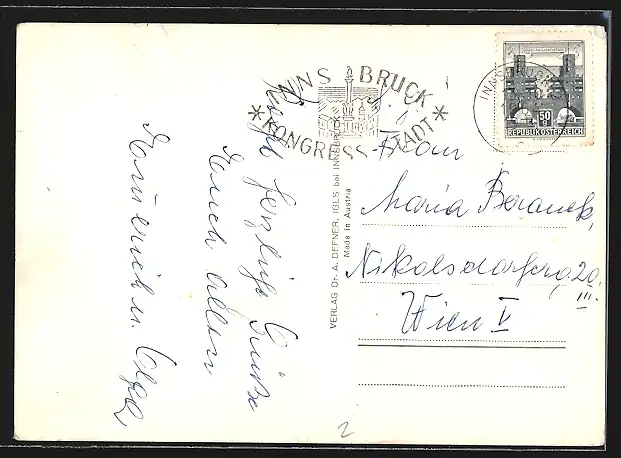 INNSBRUCK
* KONGRESS-STADT *
INNSBRUCK
50 g
REPUBLIK ÖSTERREICH
VERLAG Dr. A. DEFNER, IGLS bei INNSBRUCK
Made in Austria
Frau
Maria Beranek,
Nikolsdorferg 20
III.
Wien V
herzliche Grüße
Euch allen
u. Olga
2